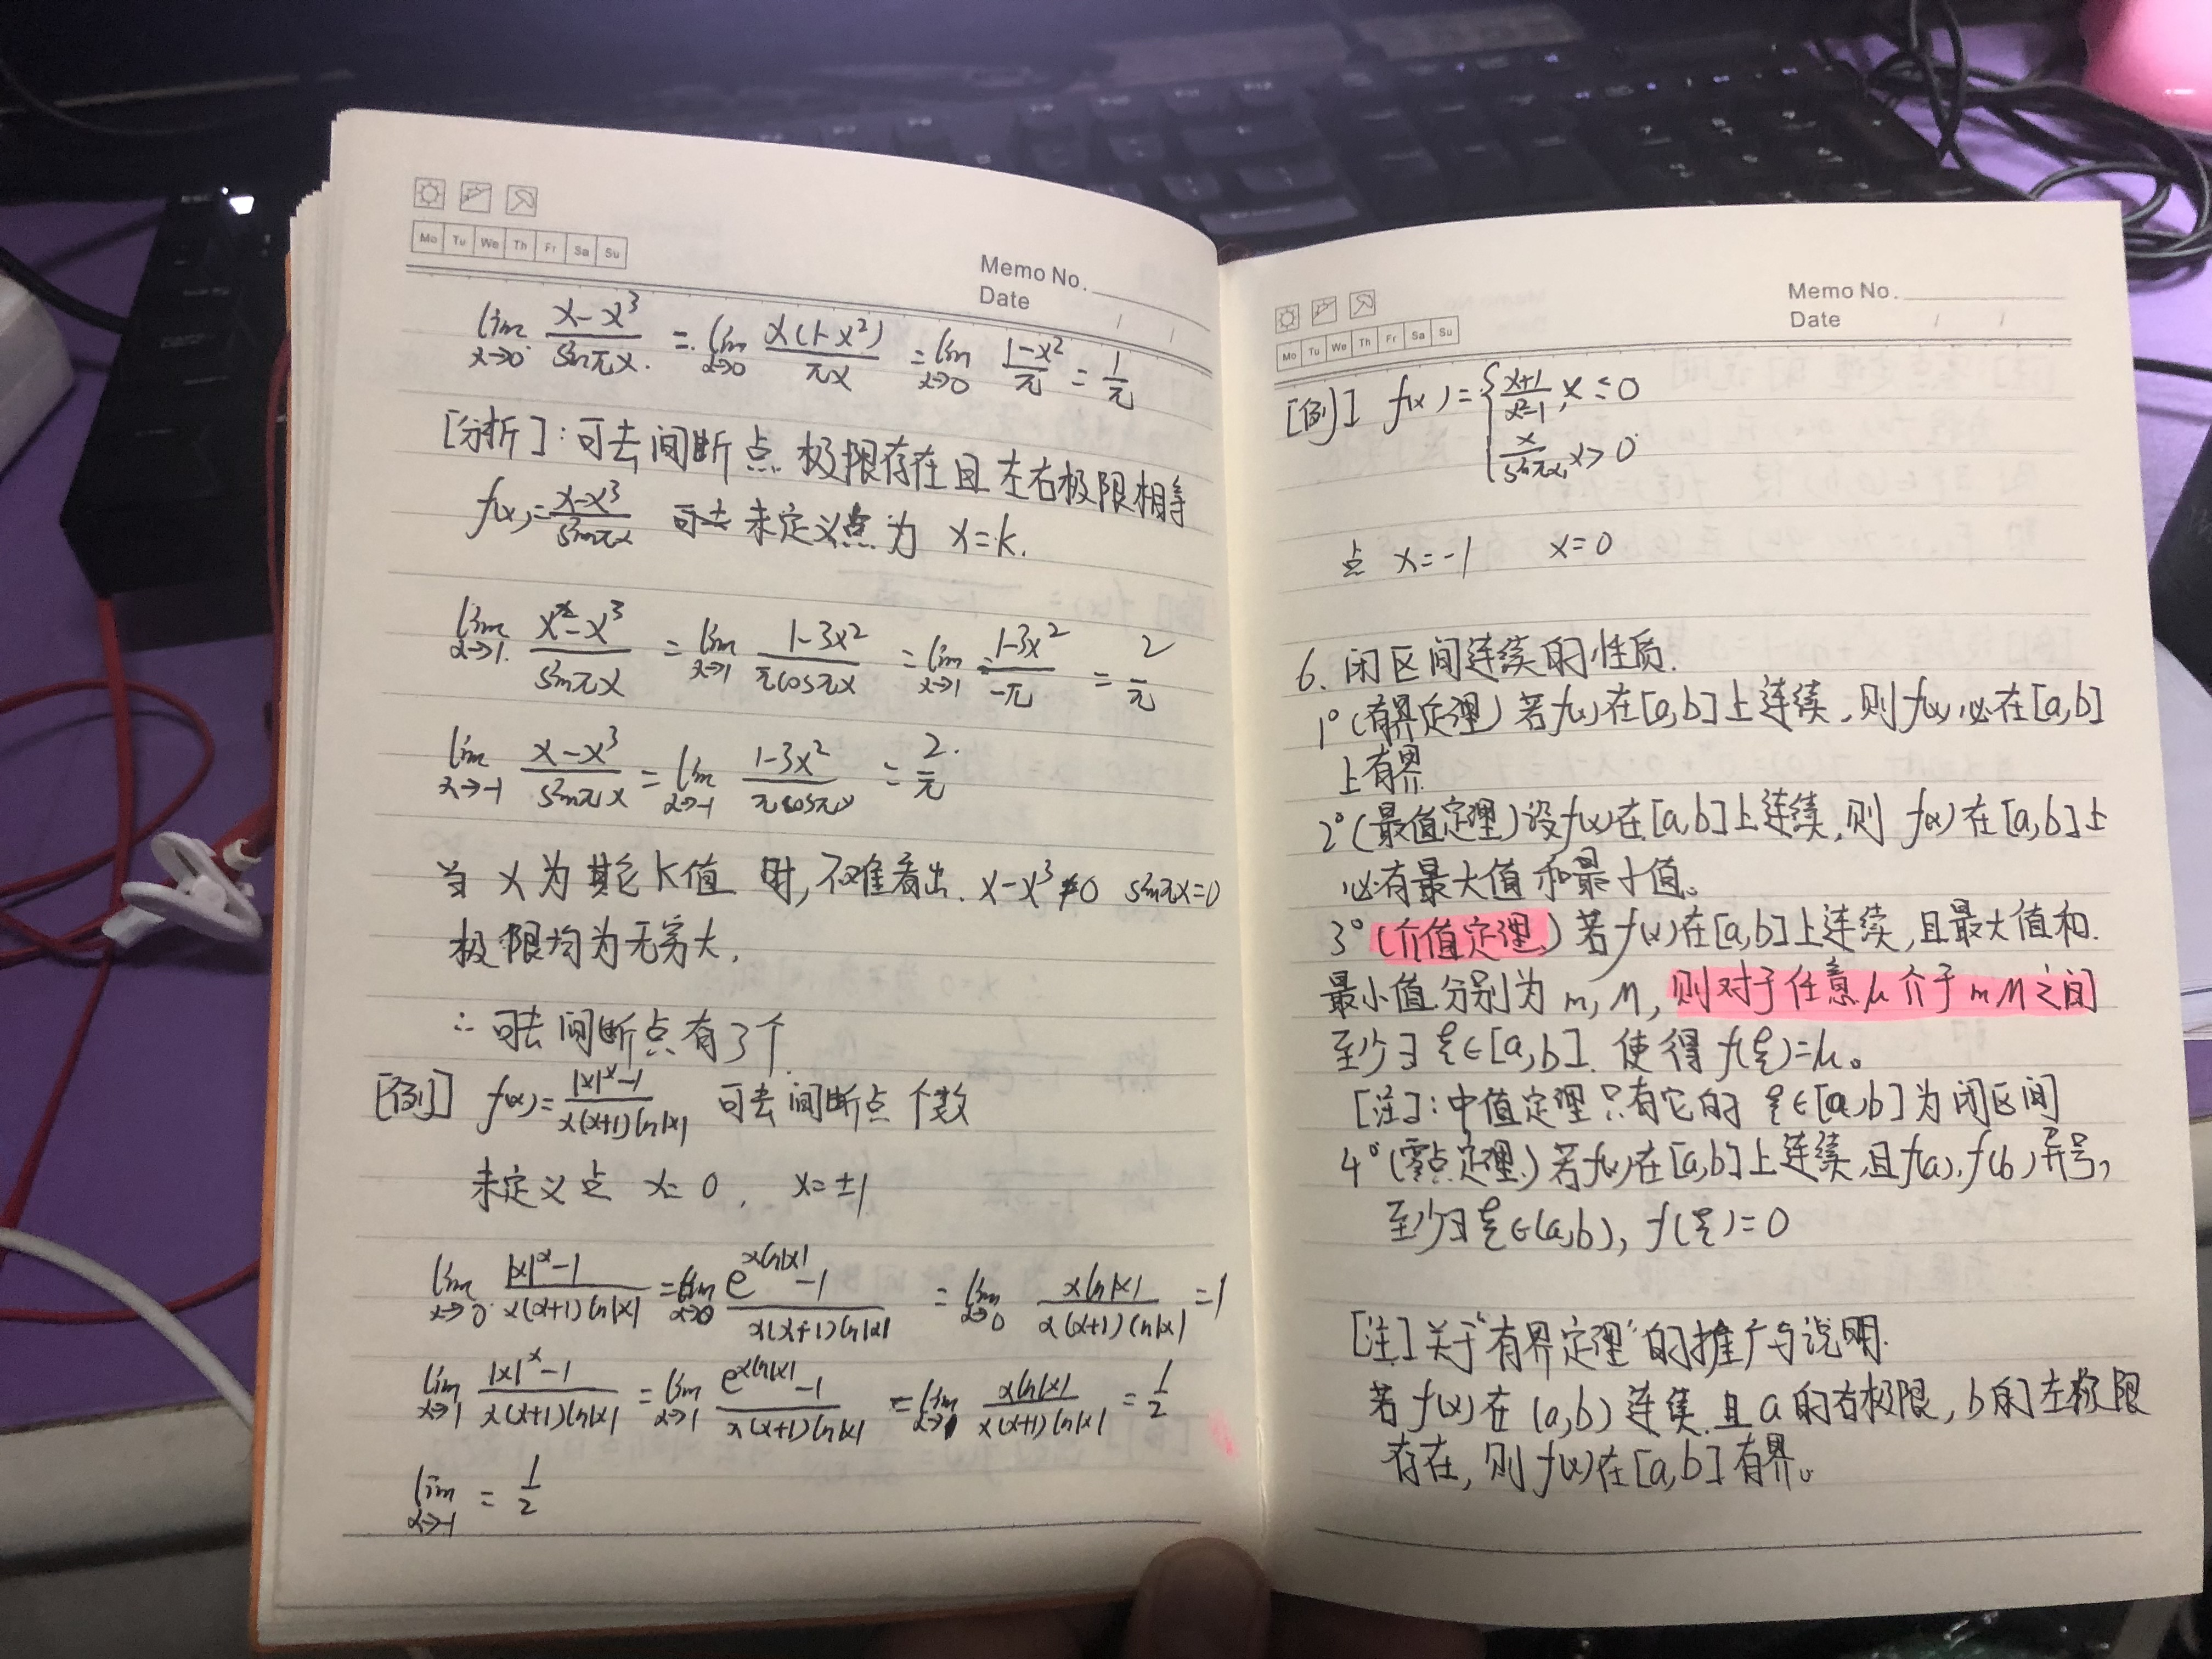 Mo Tu We Th Fr Sa Su
Memo No.
Date / /
lim x→0 (x-x³)/(sinπx) = lim x→0 x(1-x²)/(πx) = lim x→0 (1-x²)/π = 1/π
[分析]:可去间断点 极限存在且左右极限相等
f(x)=(x-x³)/(sinπx) 可去 未定义点为 x=k.
lim x→1 (x-x³)/(sinπx) = lim x→1 (1-3x²)/(πcosπx) = lim x→1 (1-3x²)/(-π) = 2/π
lim x→-1 (x-x³)/(sinπx) = lim x→-1 (1-3x²)/(πcosπx) = 2/π
当 x 为其它 k值 时,不难看出. x-x³≠0 sinπx=0
极限均为无穷大.
∴可去间断点有3个.
[例] f(x)=(|x|ˣ-1)/(x(x+1)ln|x|) 可去间断点个数
未定义点 x=0, x=±1
lim x→0 (|x|ˣ-1)/(x(x+1)ln|x|) = lim x→0 (e^(xln|x|)-1)/(x(x+1)ln|x|) = lim x→0 (xln|x|)/(x(x+1)ln|x|) = 1
lim x→1 (|x|ˣ-1)/(x(x+1)ln|x|) = lim x→1 (e^(xln|x|)-1)/(x(x+1)ln|x|) = lim x→1 (xln|x|)/(x(x+1)ln|x|) = 1/2
lim x→-1 = 1/2
Mo Tu We Th Fr Sa Su
Memo No.
Date / /
[例] f(x)={(x+1)/(x²-1), x≤0
x/(sinπx), x>0
点 x=-1 x=0
6. 闭区间连续的性质.
1°(有界定理)若f(x)在[a,b]上连续,则f(x)必在[a,b]
上有界.
2°(最值定理)设f(x)在[a,b]上连续,则 f(x)在[a,b]上
必有最大值和最小值。
3°(介值定理)若f(x)在[a,b]上连续,且最大值和
最小值分别为 m, M, 则对于任意μ介于 m M之间
至少∃ξ∈[a,b]. 使得 f(ξ)=μ。
[注]:中值定理只有它的 ξ∈[a,b]为闭区间
4°(零点定理)若f(x)在[a,b]上连续,且f(a),f(b)异号,
至少∃ξ∈(a,b), f(ξ)=0
[注]关于“有界定理”的推广与说明.
若f(x)在(a,b)连续.且a的右极限,b的左极限
存在,则f(x)在[a,b]有界。